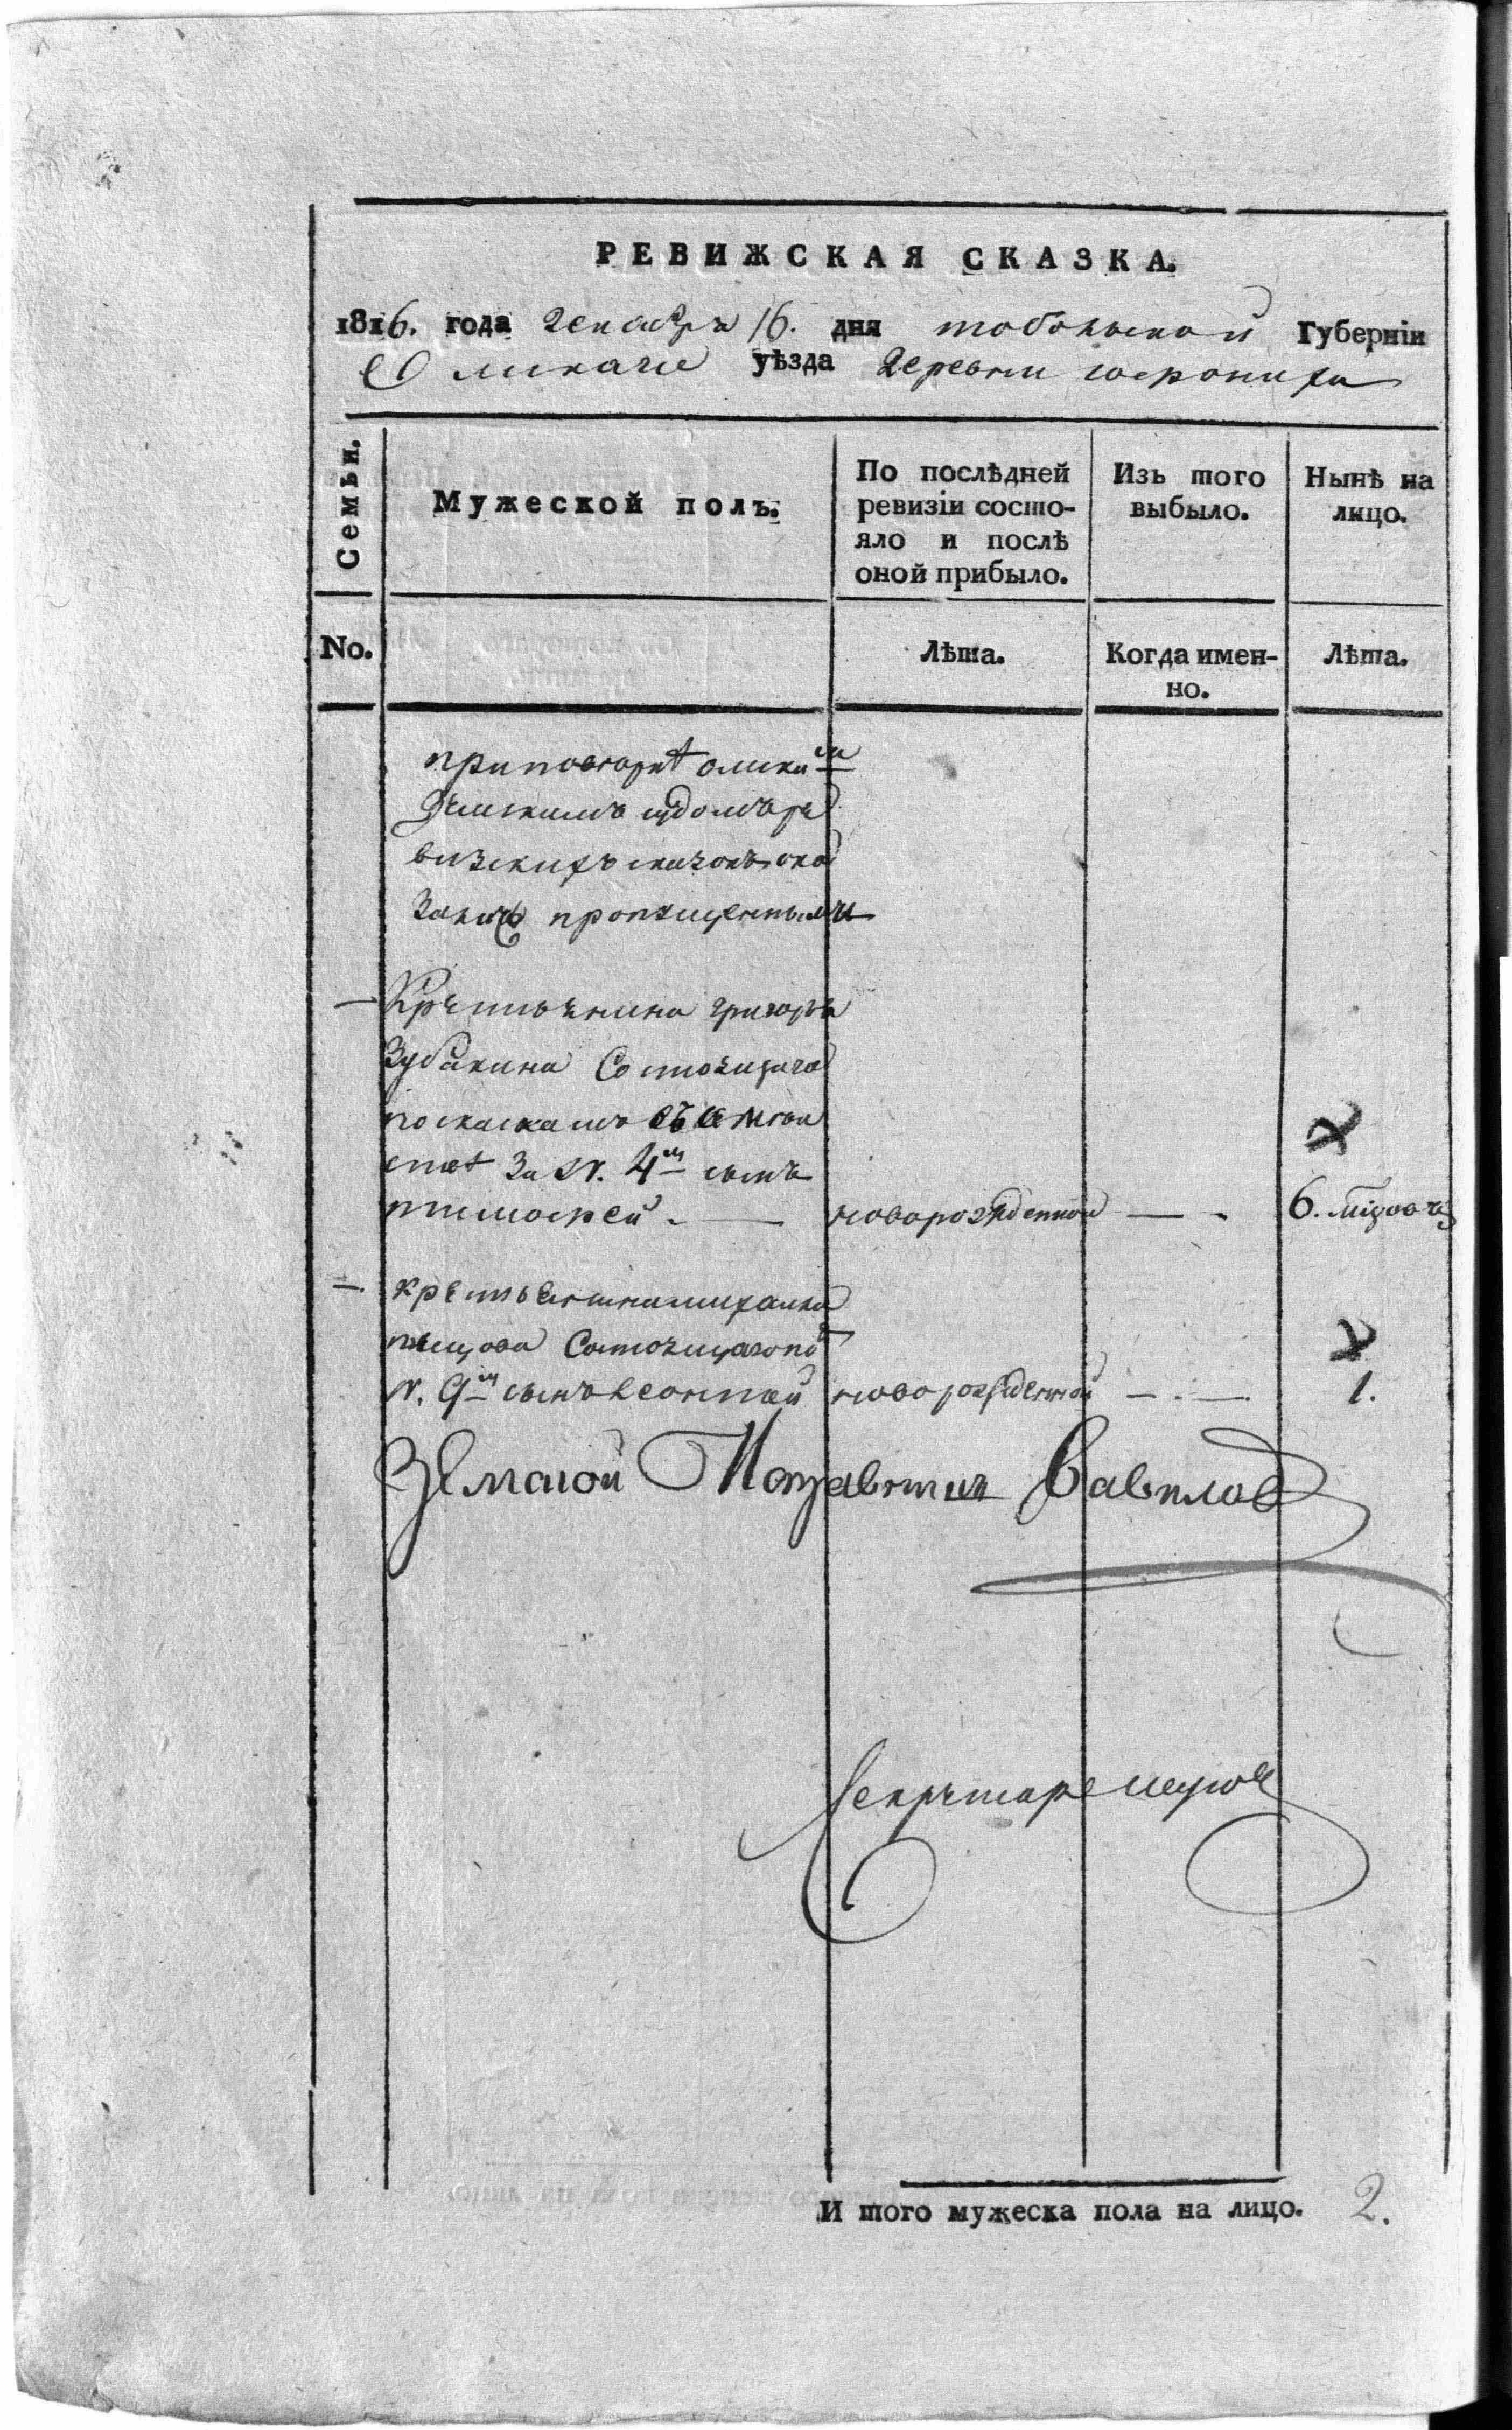 РЕВИЖСКАЯ СКАЗКА.
1816. года декабря 16. дня тобольской Губерніи
Омскаго уѣзда деревни
Семьи.
Мужеской полъ.
По послѣдней
ревизіи состо-
яло и послѣ
оной прибыло.
Изъ того
выбыло.
Нынѣ на
лицо.
No.
Лѣта.
Когда имен-
но.
Лѣта.
при поверке омски
земскимъ судомъ ре
визскихъ сказокъ ока
зались пропущенными
Крестьянина григорья
Зубакина Состоящаго
по скаскамъ
За N. 4м сынъ
тимофей новорожденной 6. мѣсяцъ
крестьянина михаила
Состоящаго по
N. 9м сынъ леонтей новорожденной 1.
Земской Вавилов
Секретарь
И того мужеска пола на лицо. 2.